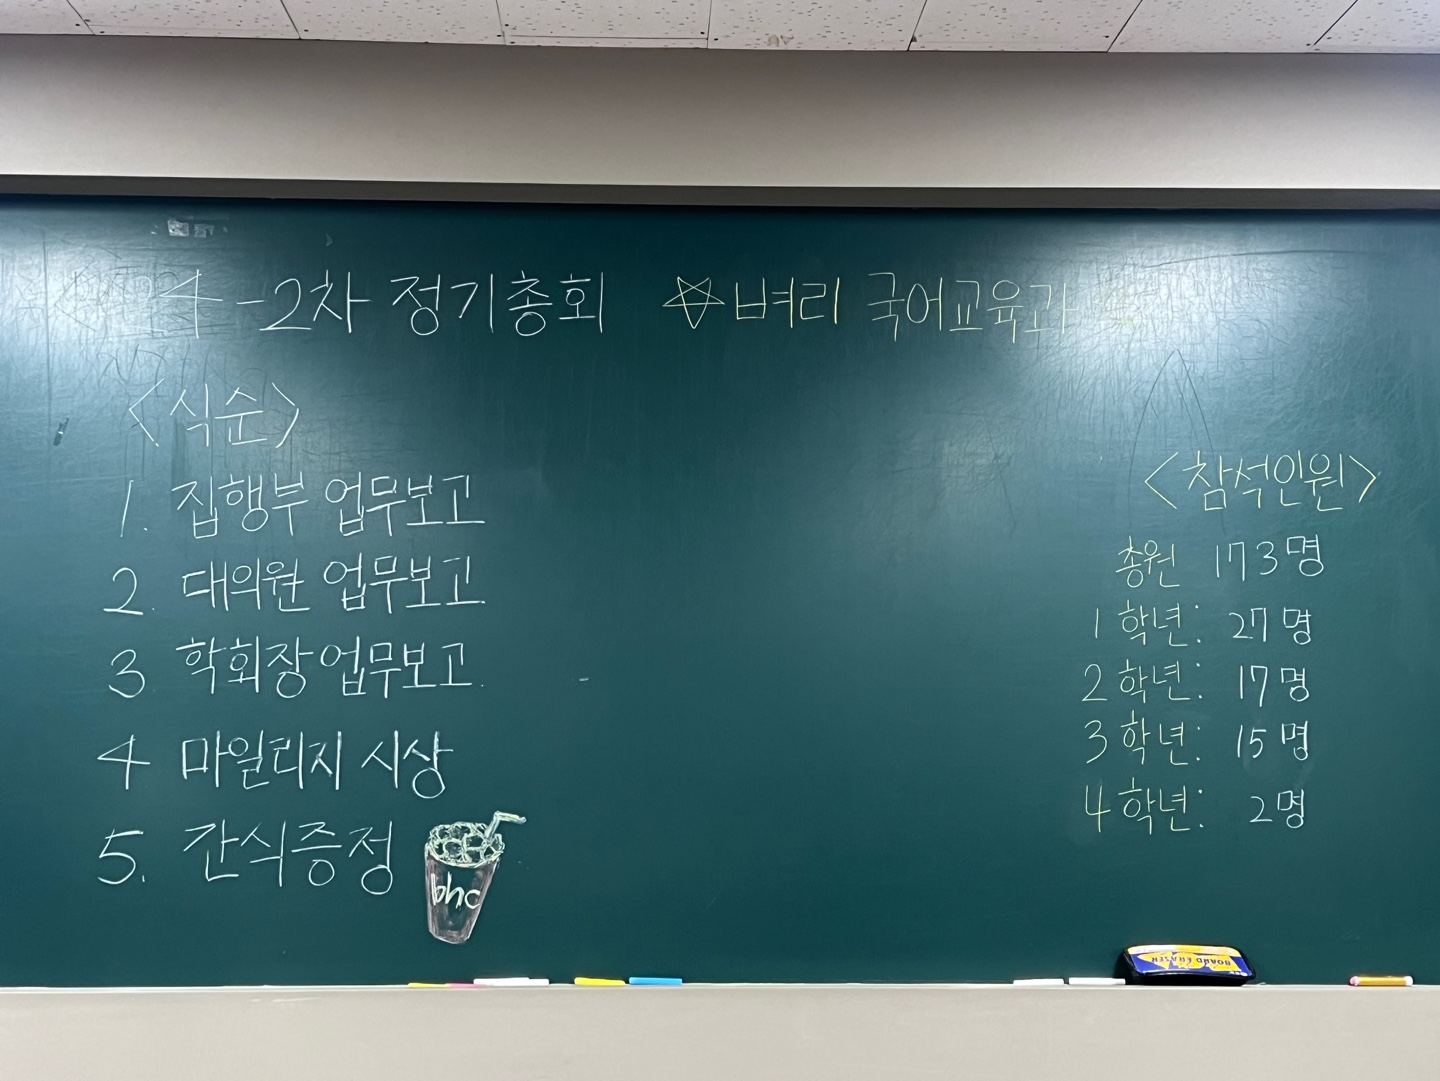 24-2차 정기총회 ☆벼리 국어교육과
<식순>
1. 집행부 업무보고
2. 대의원 업무보고.
3. 학회장 업무보고.
4 마일리지 시상
5. 간식증정
bhc
<참석인원>
총원 173명
1학년: 27명
2학년: 17명
3학년: 15명
4학년: 2명
BOARD ERASER